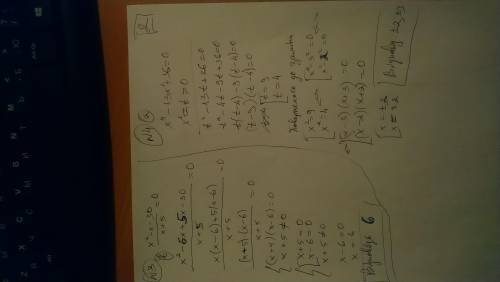 N3
б) (x² - x - 30)/(x+5) = 0
(x² - 6x + 5x - 30)/(x+5) = 0
(x(x-6)+5(x-6))/(x+5) = 0
((x+5)(x-6))/(x+5) = 0
{(x+5)(x-6)=0
x+5≠0
{[x+5=0
x-6=0
x+5≠0
x-6=0
x=6
Відповідь 6
2
N4 а)
x⁴-13x²+36=0
x²=t
t²-13t+36=0
t²-4t-9t+36=0
t(t-4)-9(t-4)=0
(t-9)(t-4)=0
[t=9
t=4
Повернемося до заміни
[x²=9
x²=4
[x²-3²=0
x²-2²=0
[(x-3)(x+3)=0
(x-2)(x+2)=0
[x=±2
x=±3
Відповідь ±2,±3